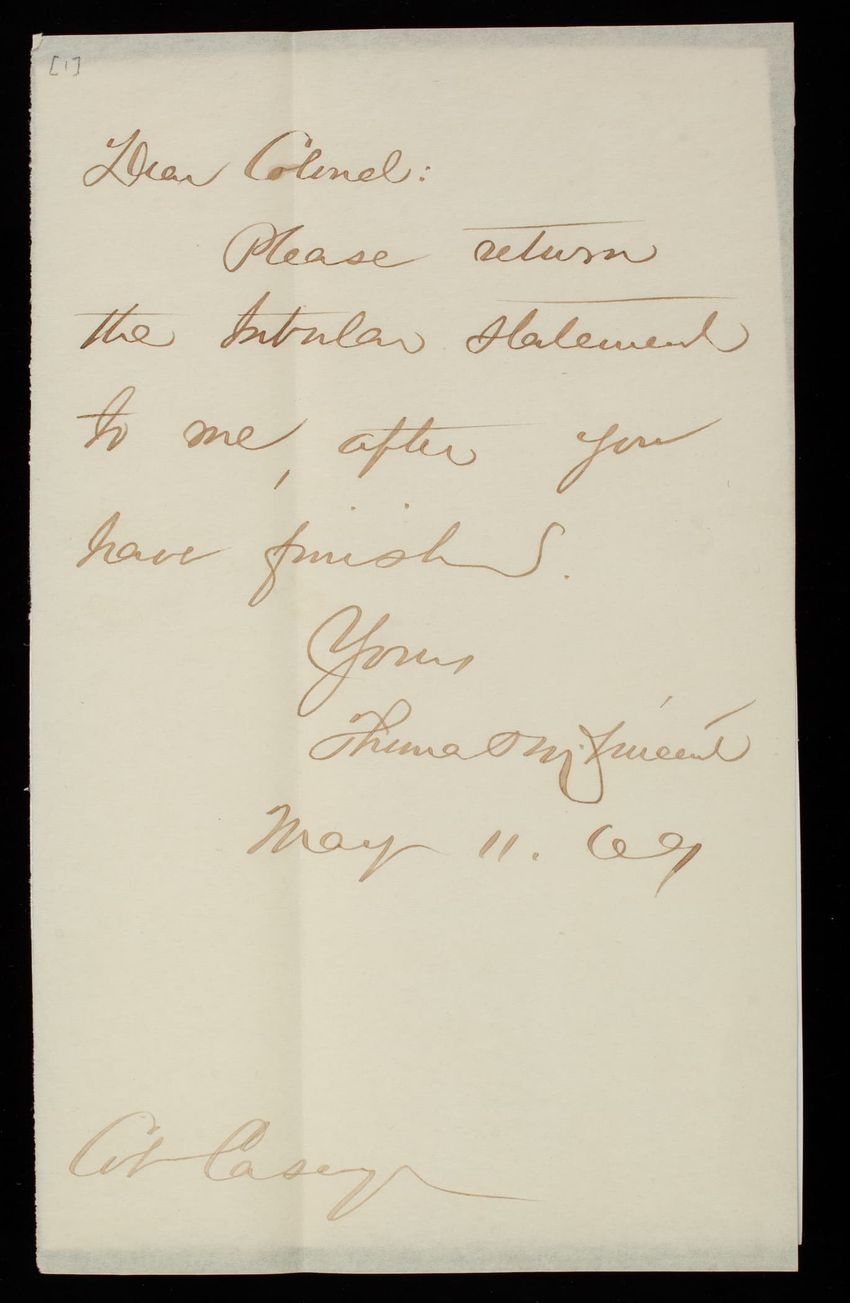 [1]
Dear Colonel:
Please return
the tabular statement
to me, after you
have finished.
Yours
Thomas M. Vincent
May 11. 69
Col Casey